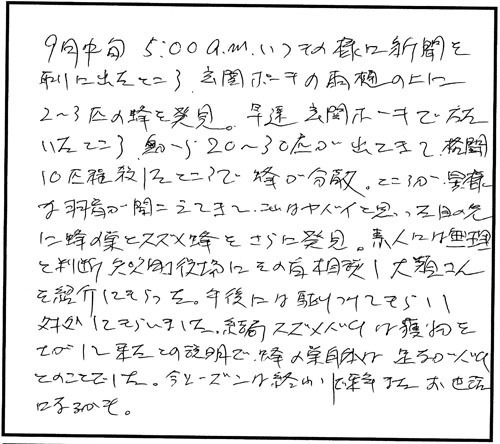 9月中旬 5:00 a.m. いつもの様に新聞を
取りに出たところ 玄関ポーチの雨樋の上に
2〜3匹の蜂を発見。早速 玄関ホーキで 叩
いたところ 動 20〜30匹が出てきて、格闘
10匹程殺したところで 蜂が分散。ところが 異様
な羽音が聞こえてきて、これはヤバイと思った目の先
に蜂の巣とスズメ蜂をさらに発見。素人には無理
と判断 矢吹町役場にその旨相談し 大類さん
を紹介してもらった。午後には駆けつけてもらい
対処してもらいました。結局 スズメバチは獲物を
さがしに来たとの説明で、蜂の巣自体は ミツバチ
とのことでした。今シーズンは終わり 来年また お世話
になるかも。